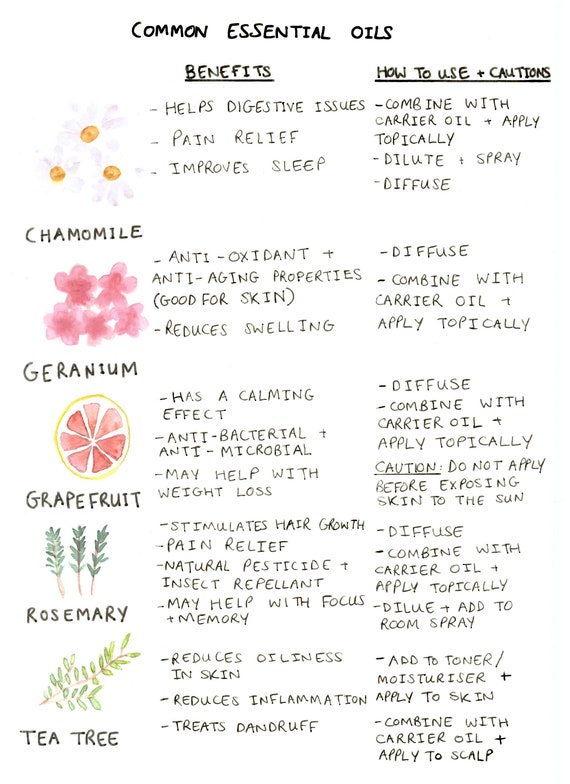 COMMON ESSENTIAL OILS
BENEFITS
HOW TO USE + CAUTIONS
- HELPS DIGESTIVE ISSUES
- PAIN RELIEF
- IMPROVES SLEEP
- COMBINE WITH
CARRIER OIL + APPLY
TOPICALLY
- DILUTE + SPRAY
- DIFFUSE
CHAMOMILE
- ANTI-OXIDANT +
ANTI-AGING PROPERTIES
(GOOD FOR SKIN)
- REDUCES SWELLING
- DIFFUSE
- COMBINE WITH
CARRIER OIL +
APPLY TOPICALLY
GERANIUM
- HAS A CALMING
EFFECT
- ANTI-BACTERIAL +
ANTI-MICROBIAL
- MAY HELP WITH
WEIGHT LOSS
- DIFFUSE
- COMBINE WITH
CARRIER OIL +
APPLY TOPICALLY
CAUTION: DO NOT APPLY
BEFORE EXPOSING
SKIN TO THE SUN
GRAPEFRUIT
- STIMULATES HAIR GROWTH
- PAIN RELIEF
- NATURAL PESTICIDE +
INSECT REPELLANT
- MAY HELP WITH FOCUS
+ MEMORY
- DIFFUSE
- COMBINE WITH
CARRIER OIL +
APPLY TOPICALLY
- DILUE + ADD TO
ROOM SPRAY
ROSEMARY
- REDUCES OILINESS
IN SKIN
- REDUCES INFLAMMATION
- TREATS DANDRUFF
- ADD TO TONER/
MOISTURISER +
APPLY TO SKIN
- COMBINE WITH
CARRIER OIL +
APPLY TO SCALP
TEA TREE